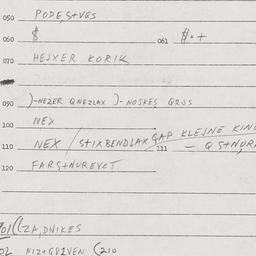 050 PODE,S+VES
060 $ 061 #.+
070 HEJXER KORIK
090 )-NEZER QNEZLAX )-NOSKES QRUS
100 NEX
110 NEX / STIXBENDLAX GAP KLEJNE KIN
111 - QS+NUR
120 FARS+NUREVCT
ZA,DNIKES
02 NIZ+GPIVEN (210